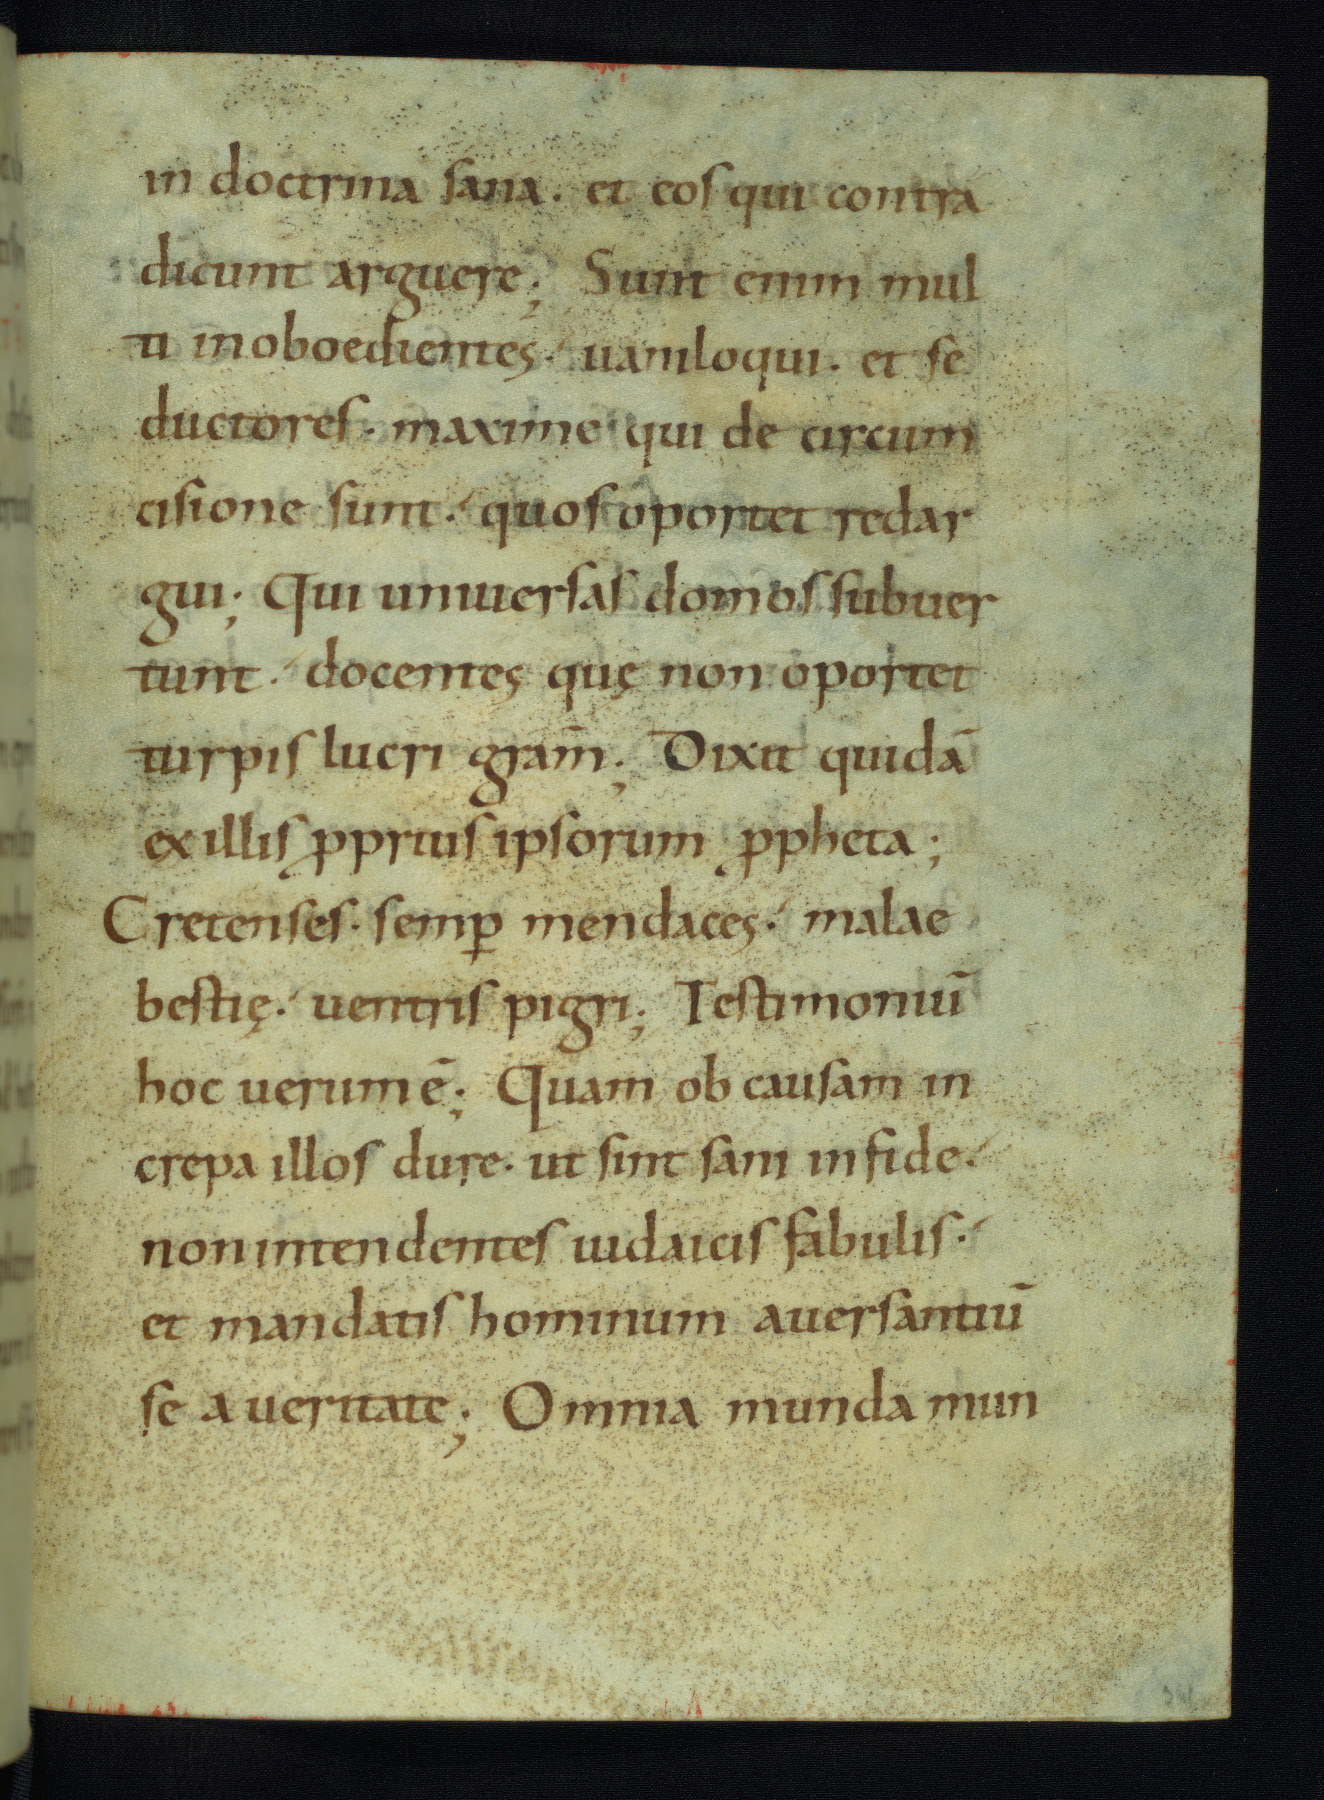 in doctrina sana. et eos qui contra
dicunt arguere; Sunt enim mul
ti inoboedientęs. uaniloqui. et se
ductores. maxime qui de circum
cisione sunt. quos oportet redar
gui; Qui uniuersas domos subuer
tunt. docentęs quę non oportet
turpis lucri gram̄; Dixit quidā
ex illis ꝓprius ipsorum ꝓpheta;
Cretenses. semꝑ mendacęs. malae
bestię. uentris pigri; Testimoniū
hoc uerum ē; Quam ob causam in
crepa illos dure. ut sint sani in fide.
non intendentes iudaicis fabulis.
et mandatis hominum auersantiū
se a ueritate; Omnia munda mun